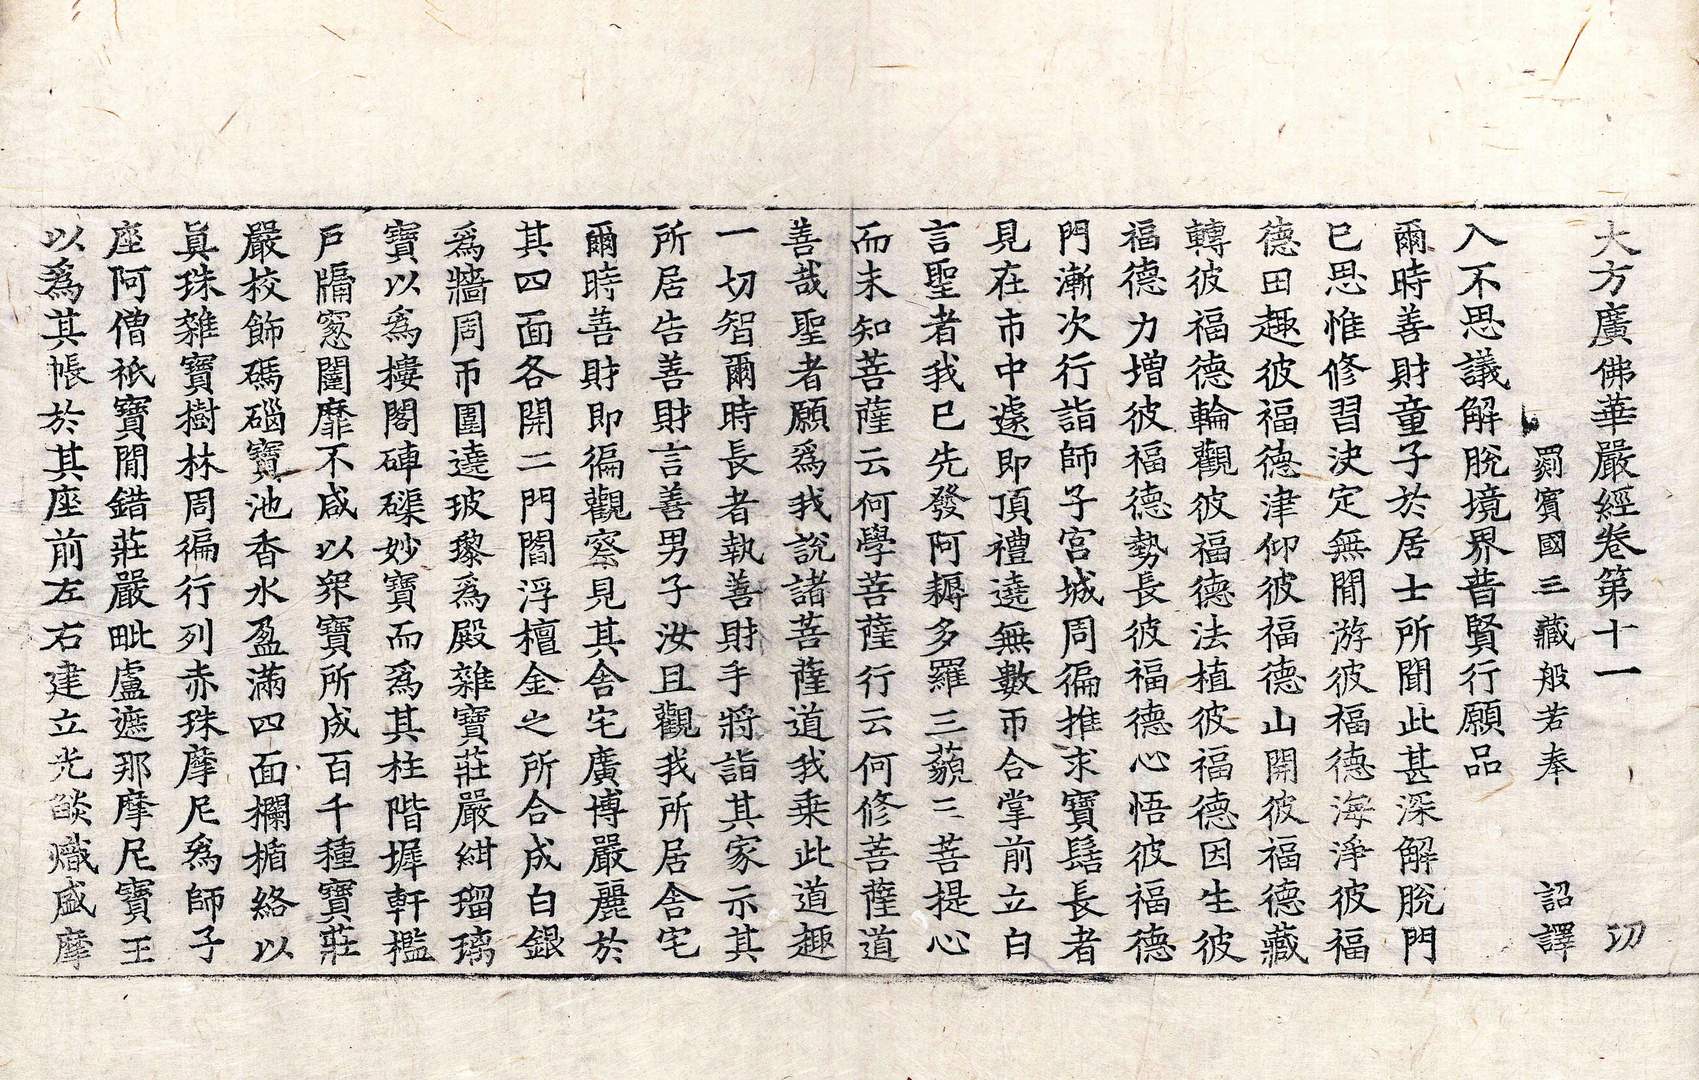 大方廣佛華嚴經卷第十一 㓛
罽賓國三藏般若奉 詔譯
入不思議解脫境界普賢行願品
爾時善財童子於居士所聞此甚深解脫門
已思惟修習決定無閒游彼福德海淨彼福
德田趣彼福德津仰彼福德山開彼福德藏
轉彼福德輪觀彼福德法植彼福德因生彼
福德力增彼福德勢長彼福德心悟彼福德
門漸次行詣師子宮城周徧推求寶髻長者
見在市中遽即頂禮遶無數帀合掌前立白
言聖者我已先發阿耨多羅三藐三菩提心
而未知菩薩云何學菩薩行云何修菩薩道
善哉聖者願爲我說諸菩薩道我乘此道趣
一切智爾時長者執善財手將詣其家示其
所居告善財言善男子汝且觀我所居舍宅
爾時善財即徧觀察見其舍宅廣博嚴麗於
其四面各開二門閻浮檀金之所合成白銀
爲牆周帀圍遶玻瓈爲殿雜寶莊嚴紺瑠璃
寶以爲樓閣硨磲妙寶而爲其柱階墀軒檻
戶牖窻闥靡不咸以衆寶所成百千種寶莊
嚴校飾碼碯寶池香水盈滿四面欄楯絡以
眞珠雜寶樹林周徧行列赤珠摩尼爲師子
座阿僧祇寶閒錯莊嚴毗盧遮那摩尼寶王
以爲其帳於其座前左右建立光燄熾盛摩